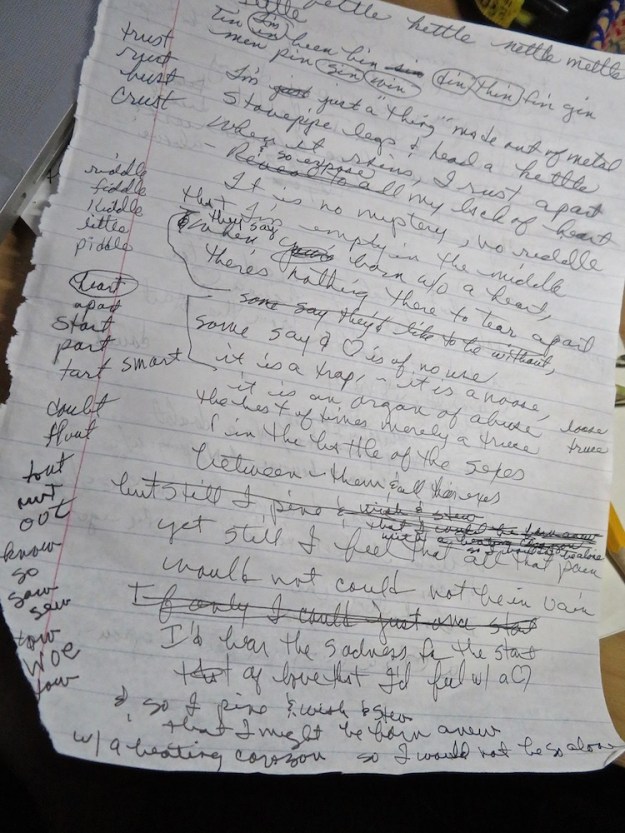 kettle kettle nettle mettle
Tin tin been bin din thin fin gin
men pin sin win
trust
rust
bust
crust
I'm just just a "thing" made out of metal
Stovepipe legs & head a kettle
When it rains, I rust apart
- & so expose
Reveal to all my lack of heart
It is no mystery, no riddle
that I'm empty in the middle
riddle
fiddle
middle
little
piddle
they say
When born w/o a heart,
there's nothing there to tear apart
heart
apart
start
part
tart smart
some say they'd like to be without,
some say a ♡ is of no use
it is a trap, it is a noose,
it is an organ of abuse
loose
truce
the best of times merely a truce
in the battle of the sexes
between them & all their exes
doubt
flout
tout
out
but still I pine & wish & stew
yet still I feel that all that pain
would not could not be in vain
know
so
sow
sew
tow
woe
If only I could just one
I'd hear the sadness in the
of love that I'd feel w/ a ♡
& so I pine & wish & stew
that I might be born anew
w/ a beating corazon so I would not be so alone